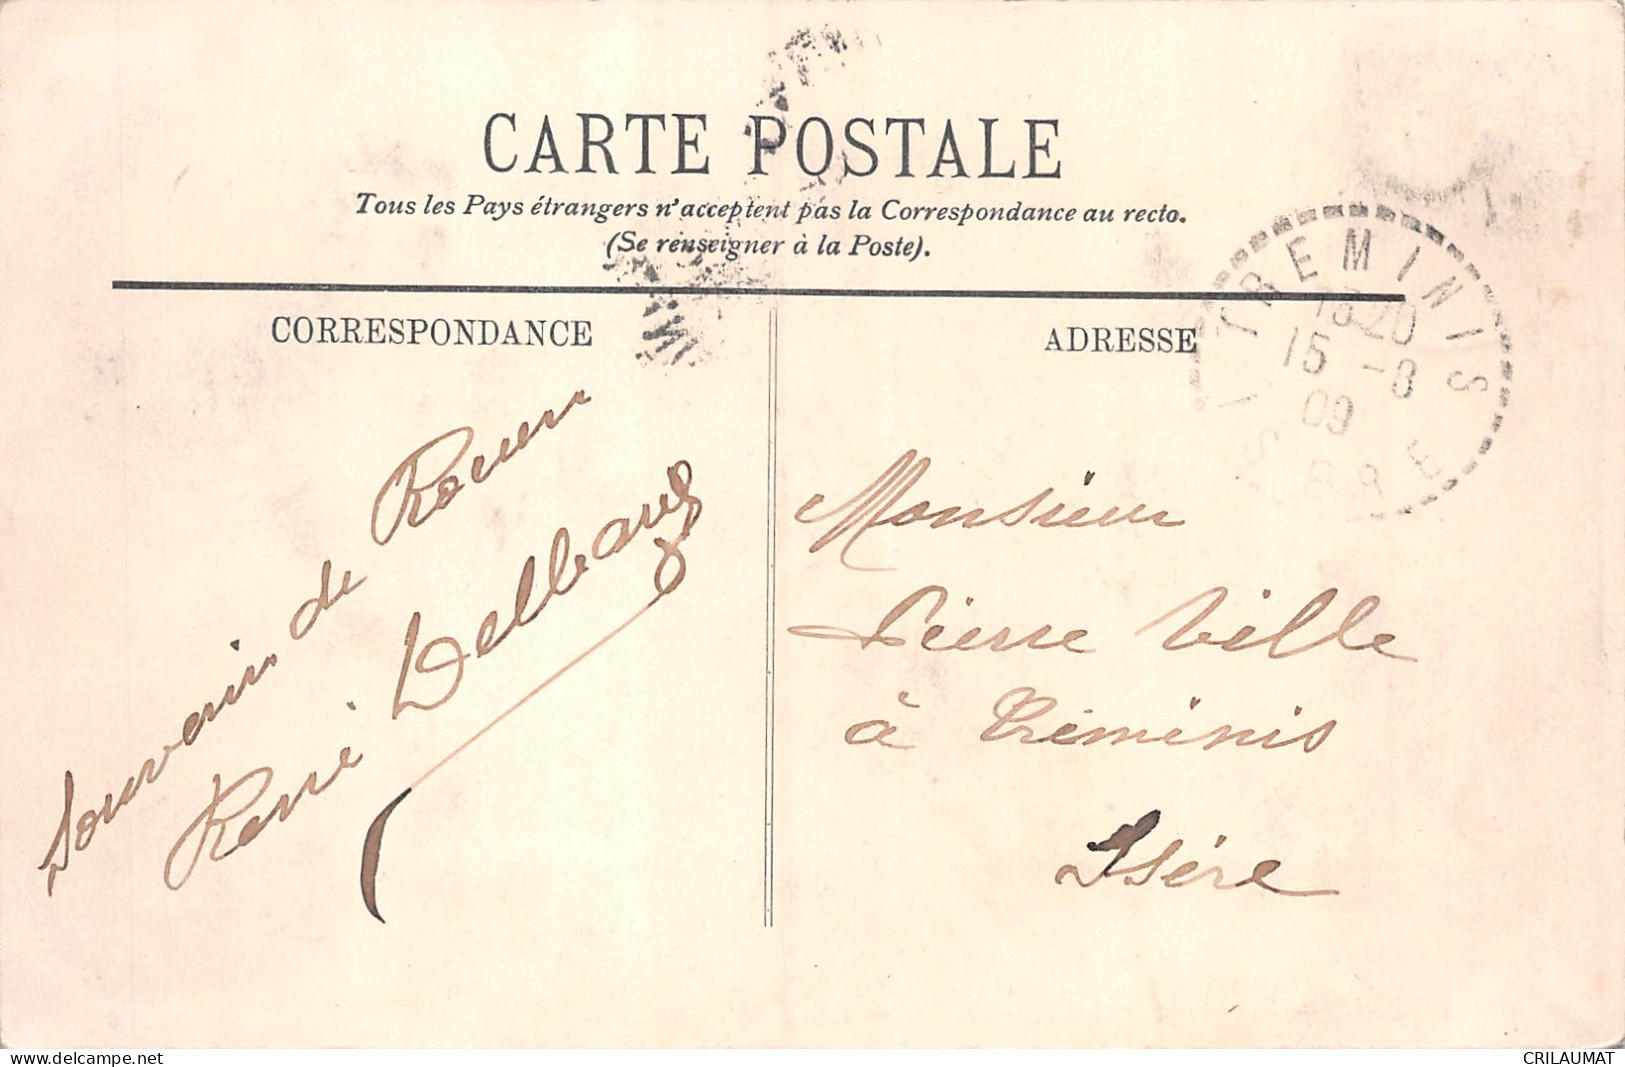 CARTE POSTALE
Tous les Pays étrangers n'acceptent pas la Correspondance au recto.
(Se renseigner à la Poste).
CORRESPONDANCE
ADRESSE
TREMINIS
15 -8
09
ISERE
Souvenir de Rouen
René
Monsieur
Pierre Ville
à Tréminis
Isère
delcampe.net
CRILAUMAT